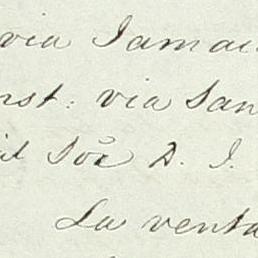 via Jamai
nst: via San
Söe D. J.
La venta